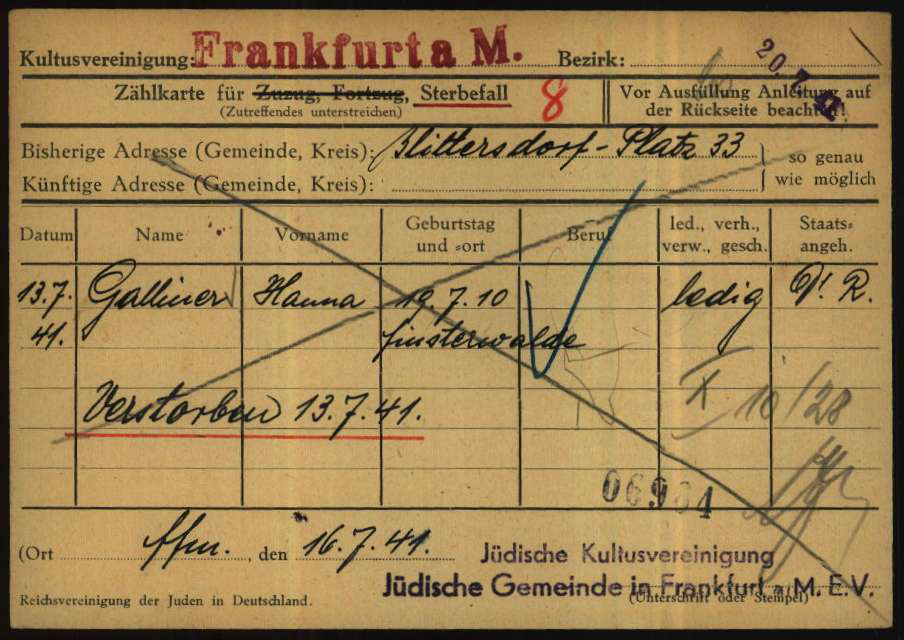 Kultusvereinigung: Frankfurt a M. Bezirk:
20.7.
Zählkarte für Zuzug, Fortzug, Sterbefall 8
(Zutreffendes unterstreichen)
Vor Ausfüllung Anleitung auf
der Rückseite beachten!
Bisherige Adresse (Gemeinde, Kreis): Blittersdorf-Platz 33
Künftige Adresse (Gemeinde, Kreis):
so genau
wie möglich
Datum Name Vorname Geburtstag und -ort Beruf led., verh., verw., gesch. Staats-angeh.
13.7. Galliner Hanna 19.7.10 ledig D. R.
41. Finsterwalde
Verstorben 13.7.41.
X 10/28
(Ort Ffm., den 16.7.41.
Jüdische Kultusvereinigung
Jüdische Gemeinde in Frankfurt a. M. E.V.
Reichsvereinigung der Juden in Deutschland. (Unterschrift oder Stempel)